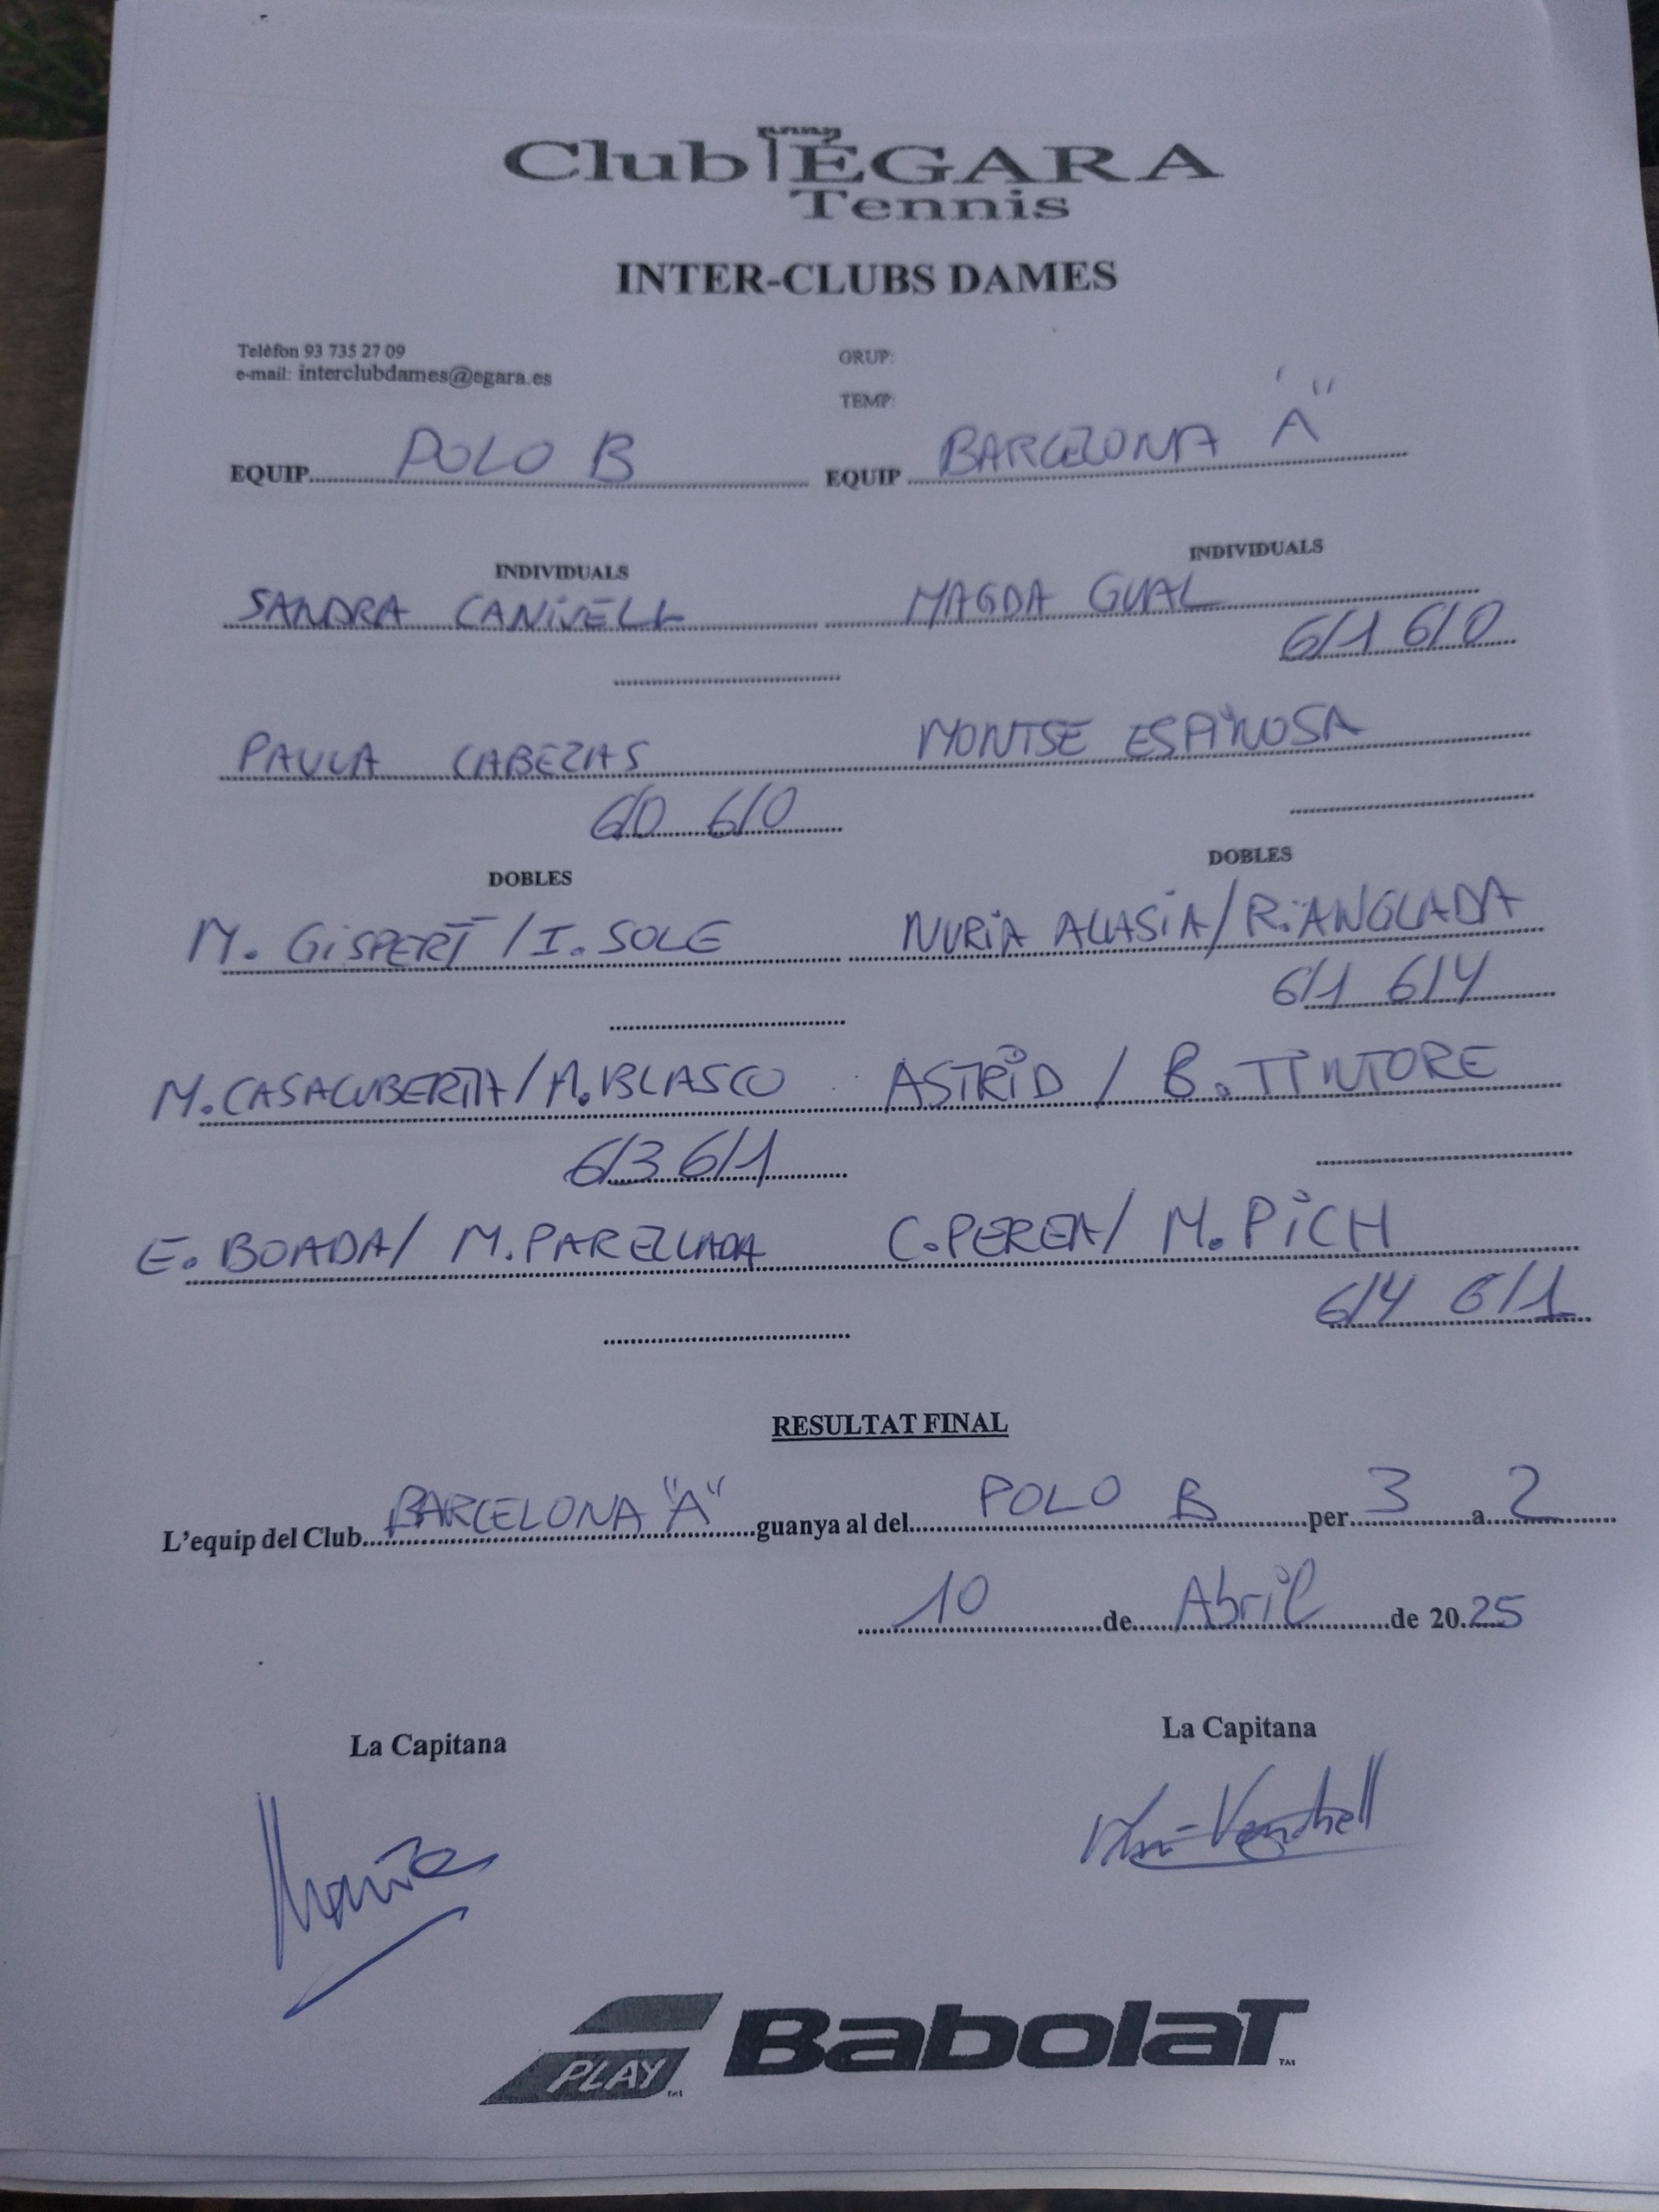 Club ÉGARA
Tennis
INTER-CLUBS DAMES
Telèfon 93 735 27 09
e-mail: interclubdames@egara.es
GRUP:
TEMP:
EQUIP POLO B EQUIP BARCELONA "A"
INDIVIDUALS INDIVIDUALS
SANDRA CANIVELL MAGDA GUAL
6/1 6/0
PAULA CABEZAS MONTSE ESPINOSA
6/0 6/0
DOBLES DOBLES
M. GISPERT / I. SOLE NURIA ALIASIA / R. ANGLADA
6/1 6/4
M. CASACUBERTA / A. BLASCO ASTRID / B. TINTORE
6/3 6/1
E. BOADA / M. PARELLADA C. PEREA / M. PICH
6/4 6/1
RESULTAT FINAL
L'equip del Club BARCELONA "A" guanya al del POLO B per 3 a 2
10 de Abril de 2025
La Capitana La Capitana
Ventrell
PLAY BabolaT TM